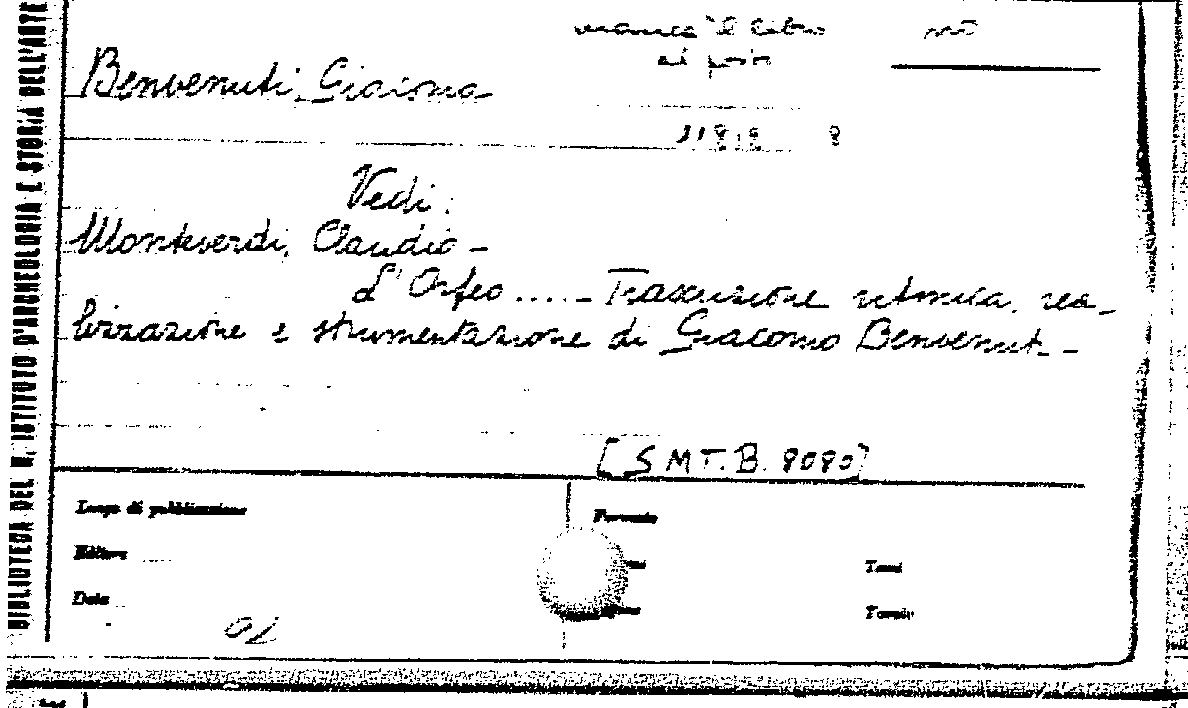 BIBLIOTECA DEL R. ISTITUTO D'ARCHEOLOGIA E STORIA DELL'ARTE
manca il libro
al posto
Benvenuti, Giacomo
Vedi:
Monteverdi, Claudio -
L'Orfeo ..... - Trascrizione ritmica, rea-
lizzazione e strumentazione di Giacomo Benvenuti -
[SMT. B. 8080]
Luogo di pubblicazione
Formato
Editore
Tomi
Data
Tavole